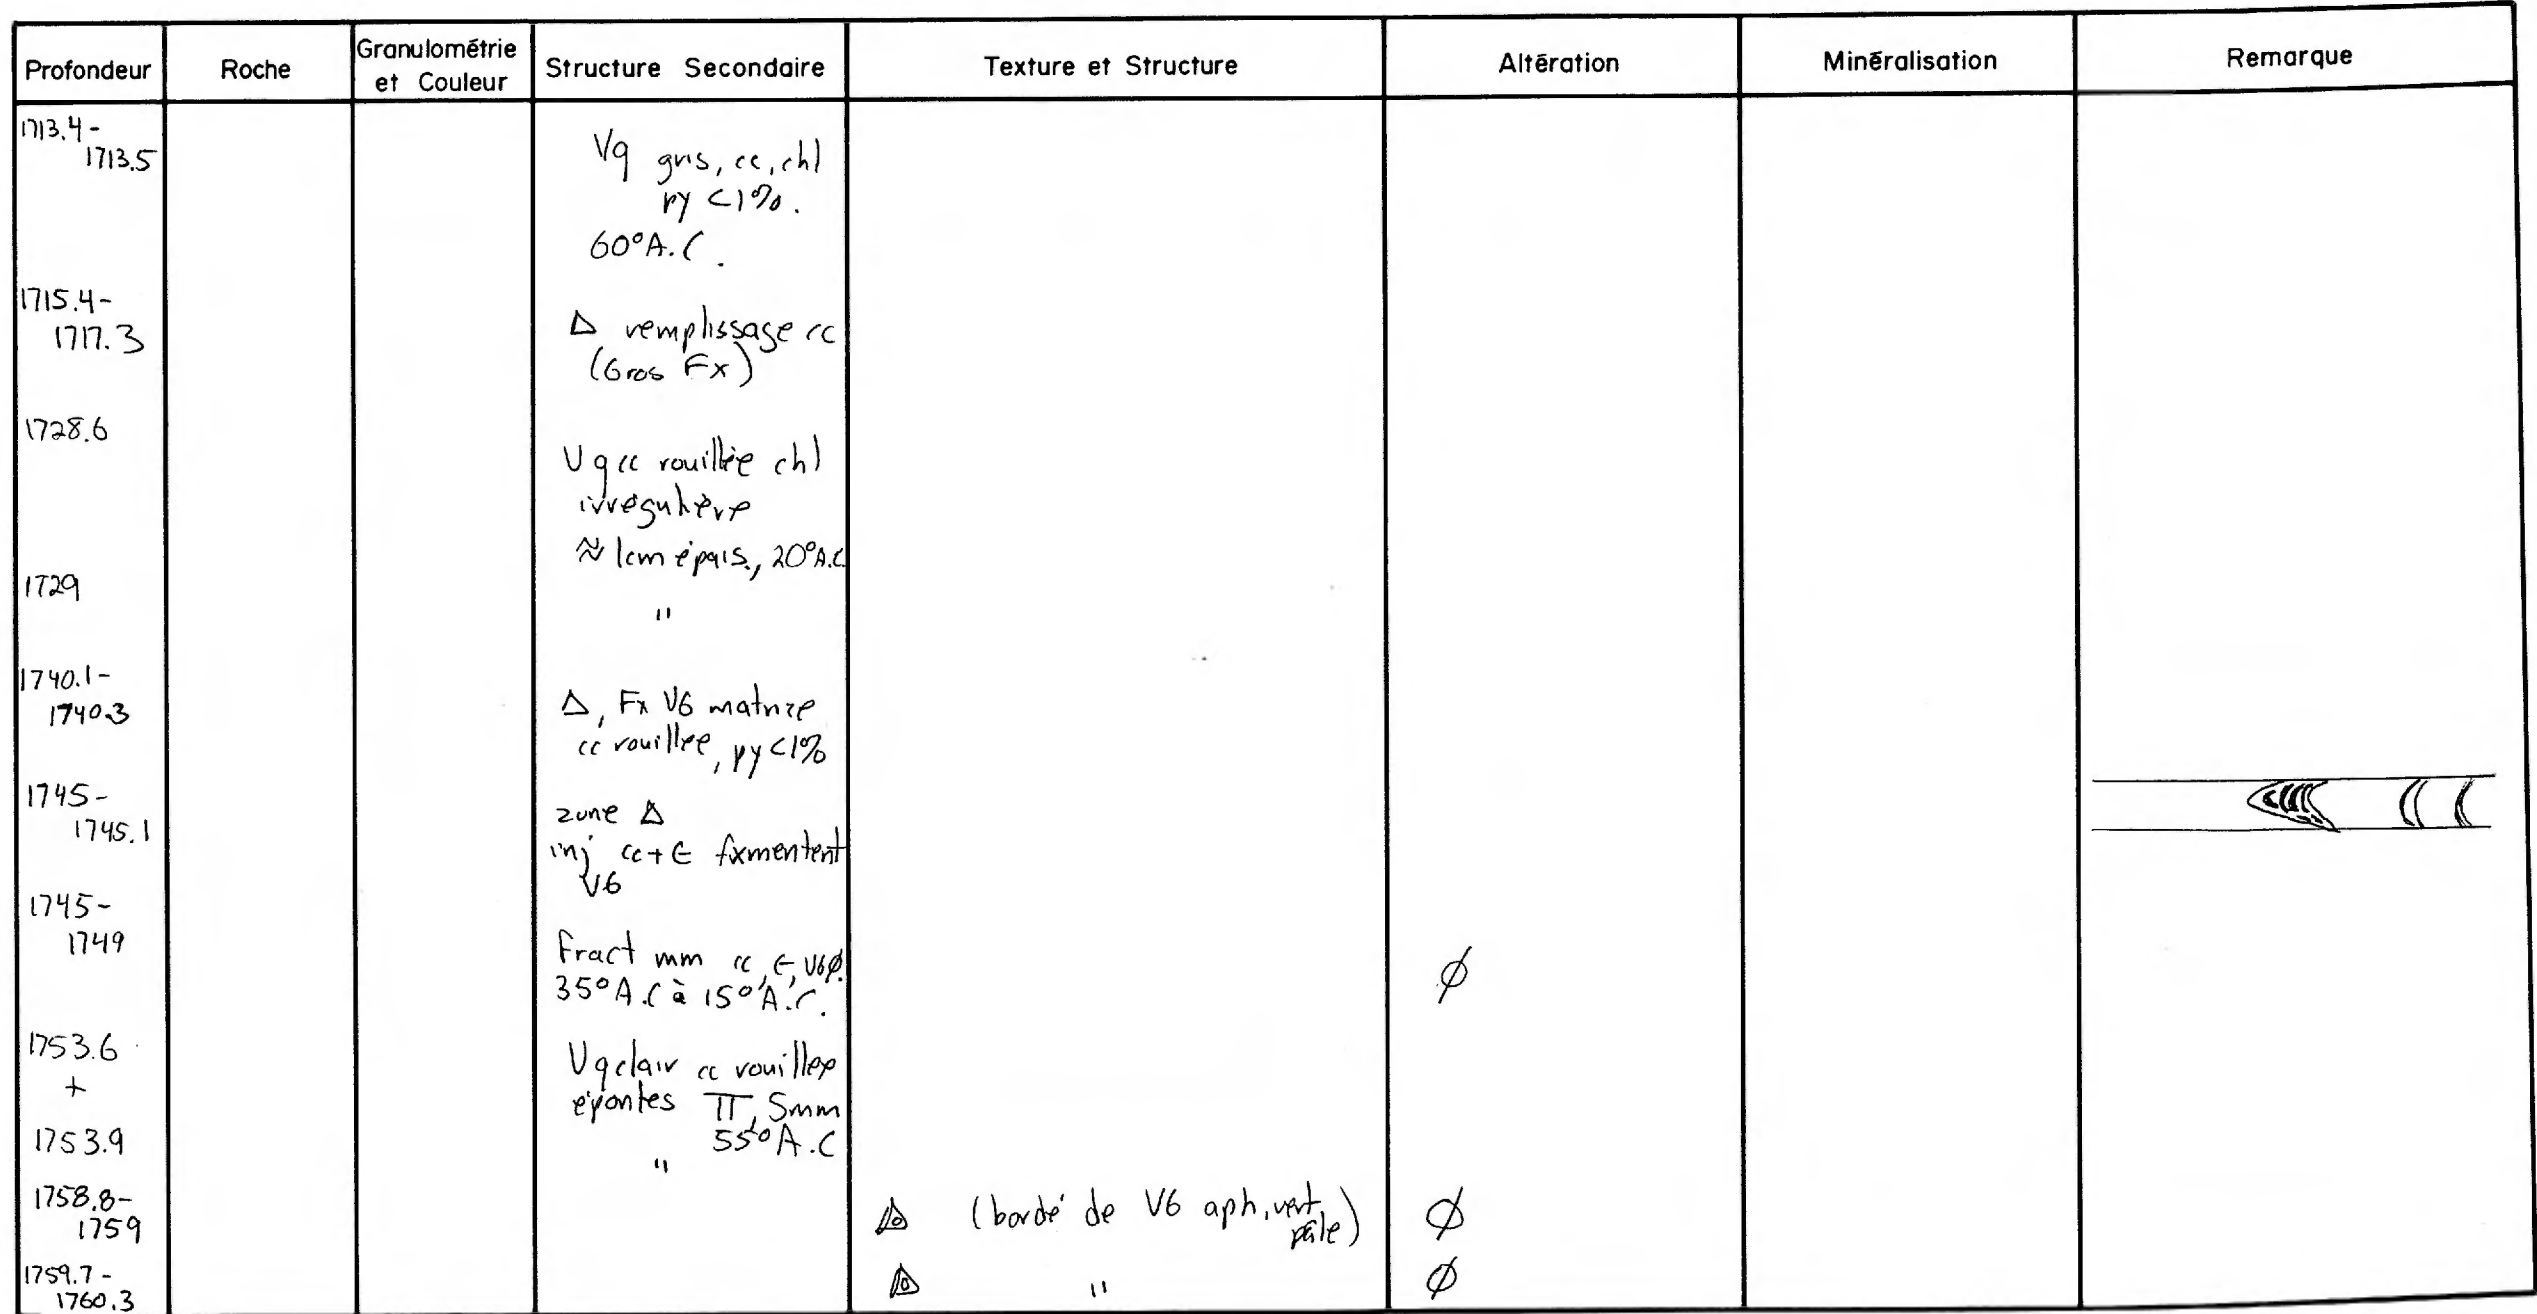 Profondeur Roche Granulométrie et Couleur Structure Secondaire Texture et Structure Altération Minéralisation Remarque
1713.4-
1713.5
Vq gris, cc, chl
py <1%.
60°A.C.
1715.4-
1717.3
Δ remplissage cc
(Gros Fx)
1728.6
Vq cc rouillée chl
irrégulière
≈ 1cm épais., 20°A.C
1729
"
1740.1-
1740.3
Δ, Fx V6 matrice
cc rouillée, py <1%
1745-
1745.1
zone Δ
inj cc + Є fxmentent
V6
1745-
1749
Fract mm cc, Є, V6 ϕ.
35°A.C à 15°A.C.
ϕ
1753.6
+
Vq clair cc rouillée
épontes TT, 5mm
55°A.C
1753.9
"
1758.8-
1759
(bordé de V6 aph, vert
pâle)
ϕ
1759.7-
1760.3
"
ϕ